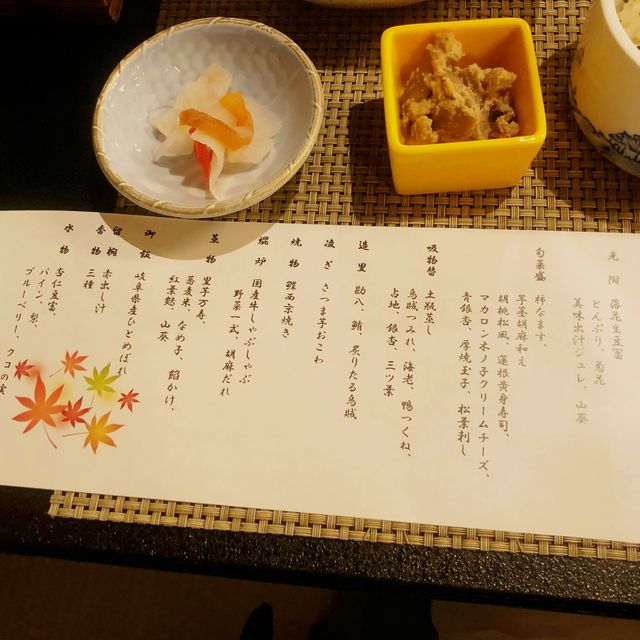 先附 落花生豆富
とんぶり、菊花
美味出汁ジュレ、山葵
旬菜盛 柿なます、
芋茎胡麻和え
胡桃松風、蓮根黄身寿司、
マカロン木ノ子クリームチーズ、
青銀杏、厚焼玉子、松葉刺し
吸物替 土瓶蒸し
烏賊つみれ、海老、鴨つくね、
占地、銀杏、三ツ葉
造里 勘八、鮪、炙りたる烏賊
凌ぎ さつま芋おこわ
焼物 鰹西京焼き
焜炉 国産牛しゃぶしゃぶ
野菜一式、胡麻だれ
蒸物 里芋万寿、
蕎麦米、なめ子、餡かけ、
紅葉麩、山葵
御飯 岐阜県産ひとめぼれ
留椀 赤出し汁
香物 三種
水物 杏仁豆富、
パイン、梨、
ブルーベリー、クコの実